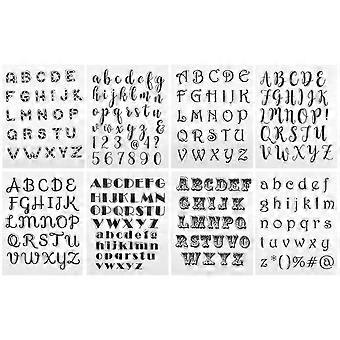 ABCDE
FGHIJK
LMNOP
QRSTU
VWXYZ
abcdefg
hijklmn
opqrstu
vwxyz&
123@4?
567890
ABCDE
FGHIJK
LMNOP
QRSTU
VWXYZ
ABCDE
FGHIJK
LMNOP!
QRSTU
VWXYZ
ABCDE
FGHIJK
LMNOP
QRSTU
VWXYZ
ABCDEFG
HIJKLMN
OPQRSTU
VWXYZ
abcdefg
hijklmn
opqrstu
vwxyz
ABCDEF
GHIJK
LMNPQ
RSTUVO
WXYZ
abcde
fghijklm
nopqrs
tuvwxy
z*()%#@